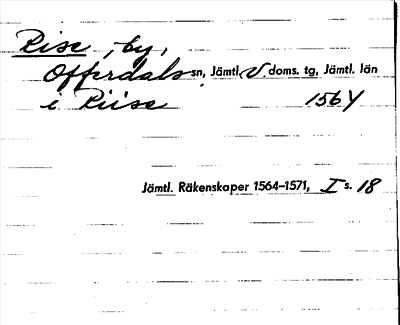 Rise, by,
Offerdals sn, Jämtl. V. doms. tg, Jämtl. län
i Riise 1564
Jämtl. Räkenskaper 1564–1571, I s. 18